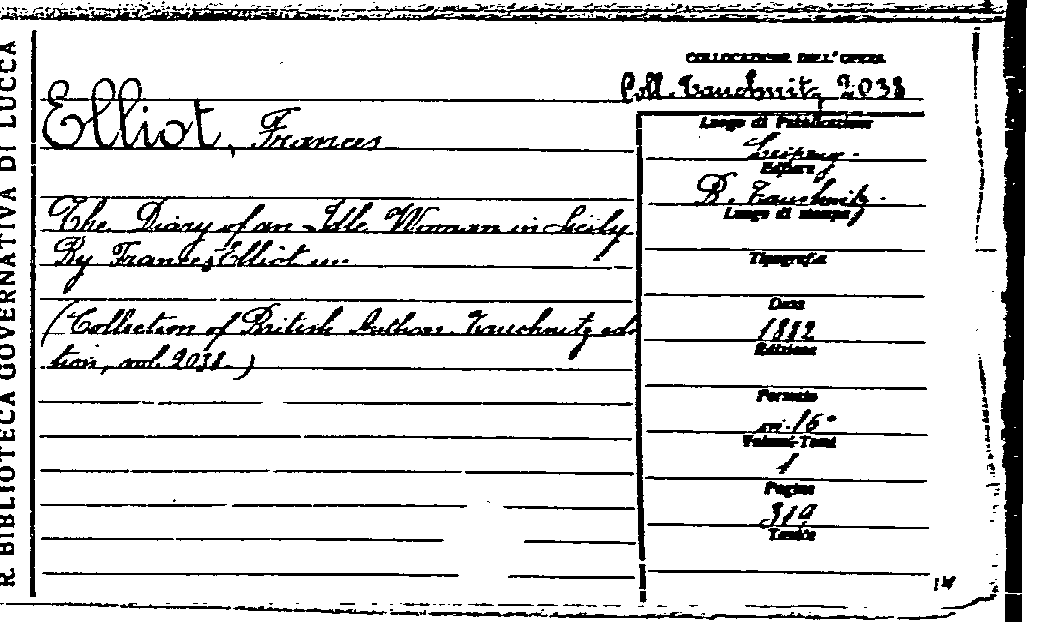 R. BIBLIOTECA GOVERNATIVA DI LUCCA
COLLOCAZIONE DELL'OPERA
Coll. Tauchnitz 2038
Elliot, Frances
Luogo di Pubblicazione
Leipzig.
Editore
B. Tauchnitz.
Luogo di stampa
The Diary of an Idle Woman in Sicily
By Frances Elliot ....
Tipografia
(Collection of British Authors. Tauchnitz edi-
tion, vol. 2038.)
Data
1882
Edizione
Formato
in-16°
Volumi-Tomi
1
Pagine
319
Tavole